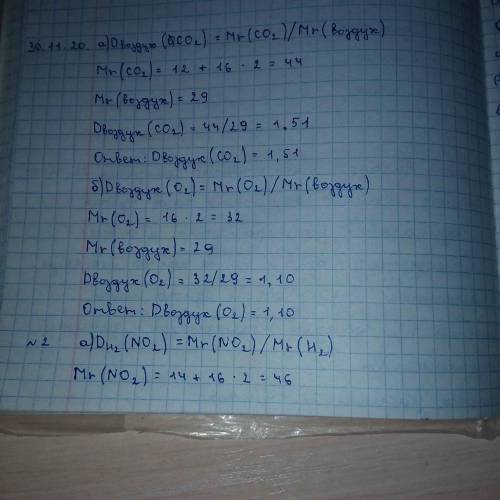 30.11.20. а) Dвоздух(CO₂) = Mr(CO₂)/Mr(воздух)
Mr(CO₂) = 12 + 16 · 2 = 44
Mr(воздух) = 29
Dвоздух(CO₂) = 44/29 = 1,51
Ответ: Dвоздух(CO₂) = 1,51
б) Dвоздух(O₂) = Mr(O₂)/Mr(воздух)
Mr(O₂) = 16 · 2 = 32
Mr(воздух) = 29
Dвоздух(O₂) = 32/29 = 1,10
Ответ: Dвоздух(O₂) = 1,10
№2 а) DH₂(NO₂) = Mr(NO₂)/Mr(H₂)
Mr(NO₂) = 14 + 16 · 2 = 46